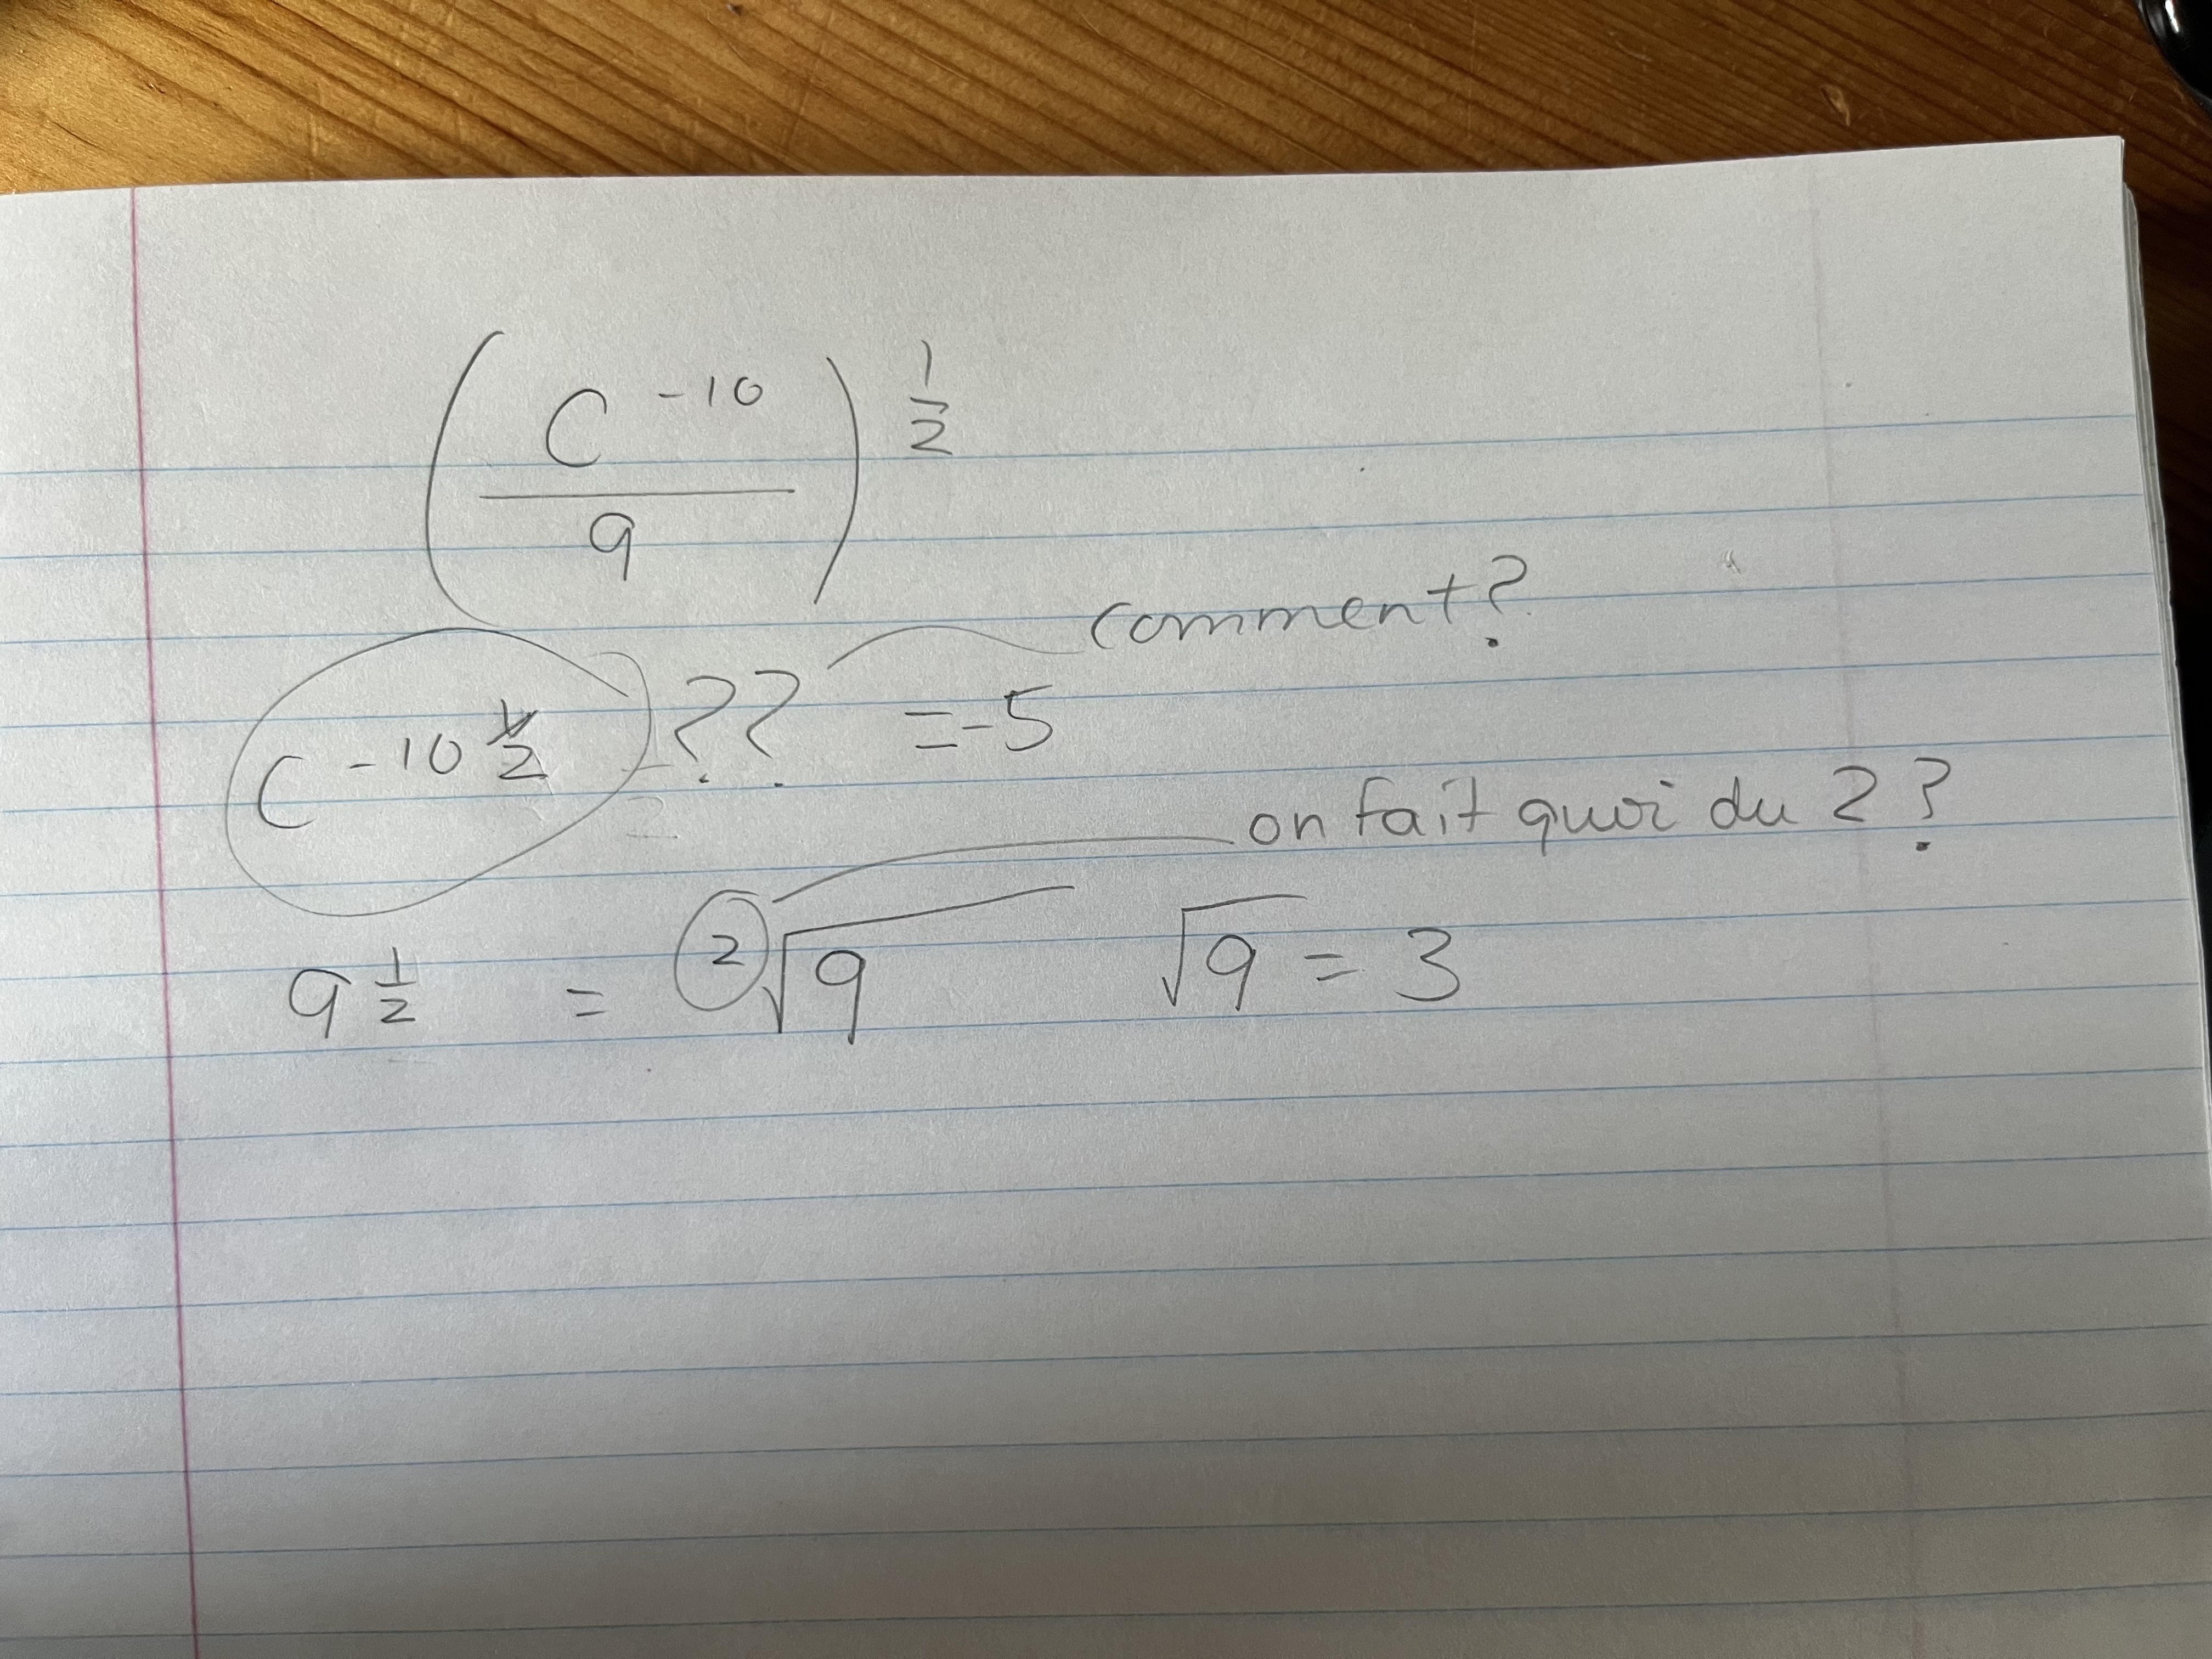 (C^-10 / 9)^1/2
comment?
C^-10 1/2 = ?? = -5
on fait quoi du 2?
9^1/2 = ²√9 √9 = 3